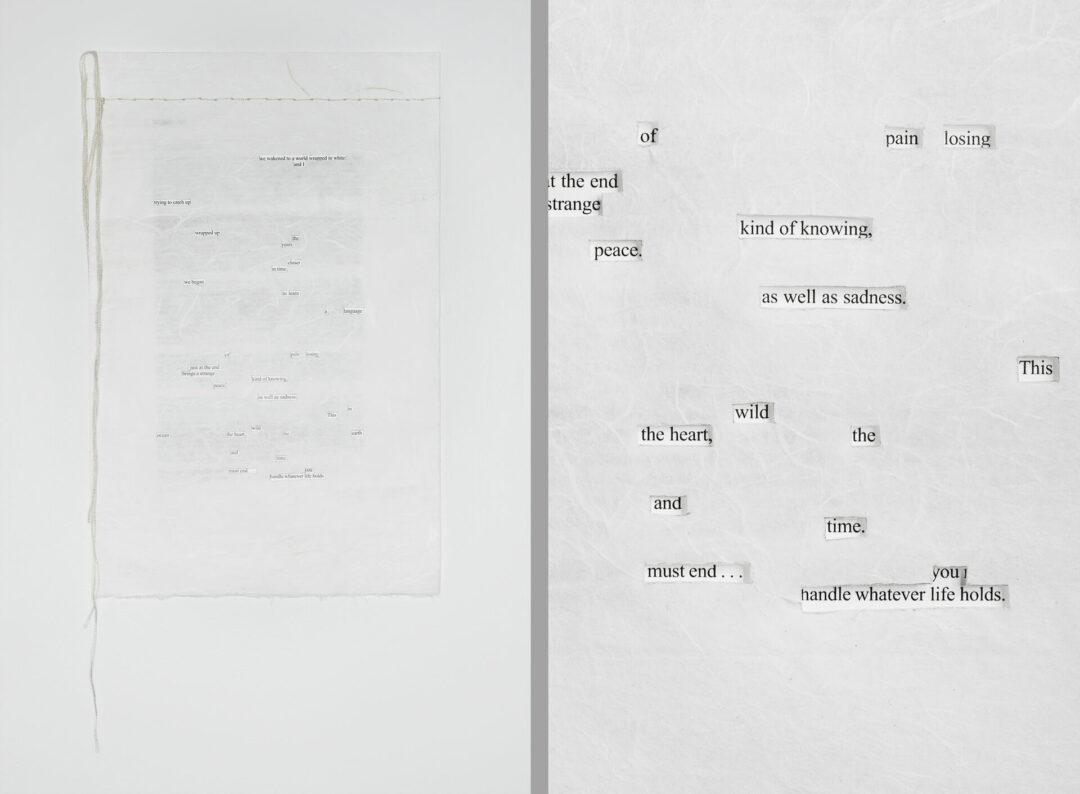 we wakened to a world wrapped in white
and I
trying to catch up
wrapped up
the
years
closer
in time.
we began
to learn
a language
of pain losing
just at the end
brings a strange
kind of knowing,
peace.
as well as sadness.
in
This
wild
ocean the heart, the earth
and
time.
must end . . . you
handle whatever life holds.
of pain losing
t the end
strange
kind of knowing,
peace.
as well as sadness.
This
wild
the heart, the
and
time.
must end . . . you
handle whatever life holds.